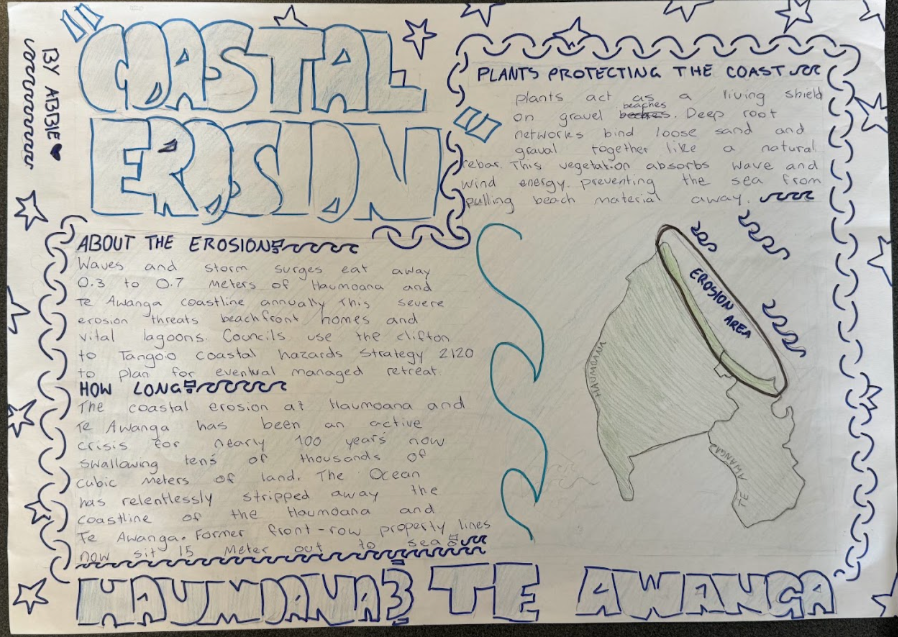 COASTAL
EROSION
BY ABBIE
ABOUT THE EROSION
Waves and storm surges eat away
0.3 to 0.7 meters of Haumoana and
Te Awanga coastline annually This severe
erosion threats beachfront homes and
vital lagoons. Councils use the clifton
to Tangoio coastal hazards Strategy 2120
to plan for eventual managed retreat
HOW LONG
The coastal erosion at Haumoana and
Te Awanga has been an active
crisis for nearly 100 years now
swallowing tens of thousands of
cubic meters of land. The Ocean
has relentlessly stripped away the
coastline of the Haumoana and
Te Awanga. Former front-row property lines
now sit 15 Meter out to sea
PLANTS PROTECTING THE COAST
plants act as a living shield
on gravel beaches. Deep root
networks bind loose sand and
graval together like a natural
rebar. This vegetation absorbs wave and
wind energy. preventing the sea from
pulling beach material away.
EROSION
AREA
HAUMOANA
TE AWANGA
HAUMOANA & TE AWANGA